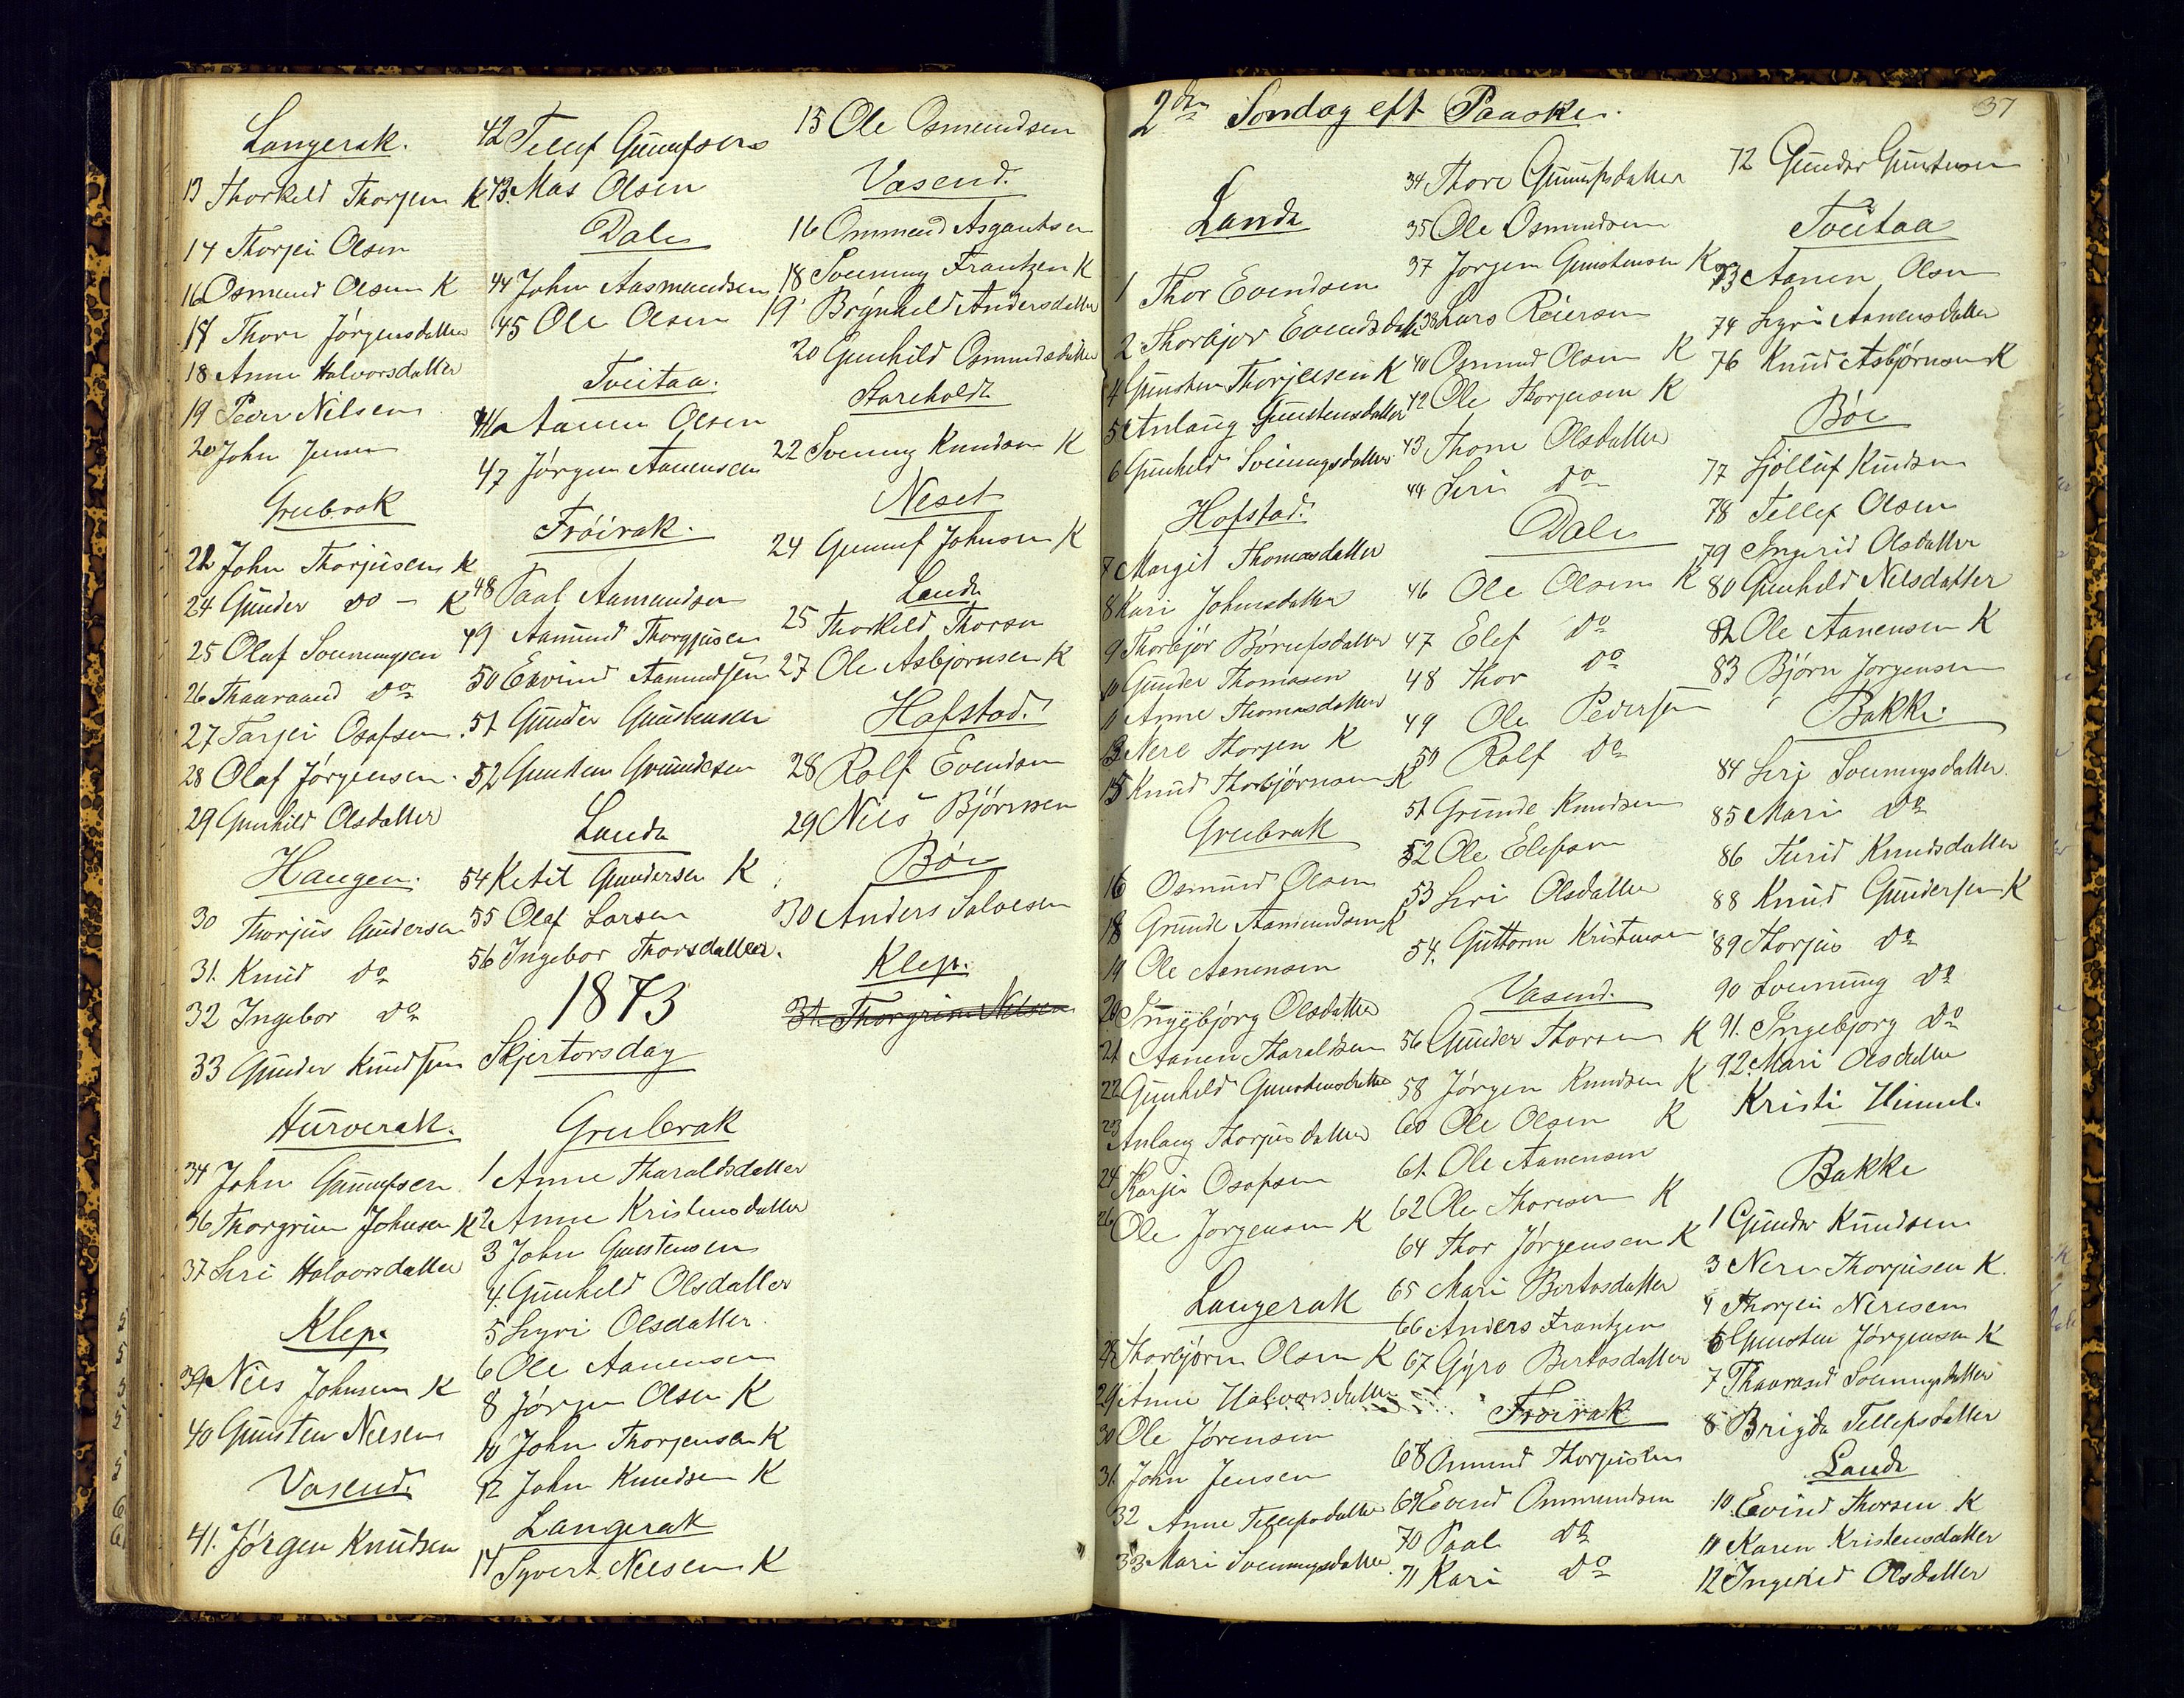 Langerak.
13 Thorkeld Thorjusen K
14 Thorjei Olsen
16 Osmund Olsen K
17 Thore Jørgensdatter
18 Anne Halvorsdatter
19 Peder Nilsen
20 John Jensen
Grubrak
22 John Thorjusen K
24 Gunder do - K
25 Olaf Sveinungsen
26 Thaaraand do
27 Tarjei Osafsen
28 Olaf Jørgensen.
29 Gunhild Olsdatter
Haugen.
30 Thorjus Gundersen
31. Knud do
32 Ingebor do
33 Gunder Knudsen
Hurverak.
34 John Gunnufsen
36 Thorgrim Johnsen K
37 Siri Halvorsdatter
Klep.
39 Niels Johnsen K
40 Gunsten Nielsen
Vasend.
41. Jørgen Knudsen
42 Tellef Gunnufsen
43. Mas Olsen
Dale
44 John Aasmundsen
45 Ole Olsen
Tveitaa.
46 Aanen Olsen
47 Jørgen Aanensen
Frøirak.
48 Paal Aamundsen
49 Aamund Thorgjusen
50 Eavind Aamundsen
51 Gunder Gunstensen
52 Gunsten Gundersen
Landa
54 Ketil Gundersen K
55 Olaf Larsen
56 Ingebor Thorsdatter.
1873
Skjertorsdag
Grubrak
1 Anne Tharaldsdatter
2 Anne Kristensdatter
3 John Gunstensen
4. Gunhild Olsdatter
5 Sigri Olsdatter
6 Ole Aanensen
8 Jørgen Olsen K
10 John Thorjensen K
12 John Knudsen K
Langerak
14 Syvert Nielsen K
15 Ole Osmundsen
Vasend.
16 Ommund Asgautsen
18 Sveinung Frantzen K
19 Brynhild Andersdatter
20 Gunhild Osmundsdatter
Stareholdt
22 Sveinung Knudsen K
Neset
24 Gunnuf Johnsen K
Landa
25 Thorkild Thorsen
27 Ole Asbjørnsen K
Hofstad.
28 Rolf Evendsen
29 Niels Bjørnsen
Bøe
30 Anders Salvesen
Klep.
31 Thorgrim Nielsen
37
2den Søndag eft Paaske.
Landa
1 Thor Evendsen
2 Thorbjor Evendsdatter
4 Gunsten Thorjeisen K
5 Anlaug Gunstensdatter
6 Gunhild Sveinungsdatter
Hofstad.
7 Margit Thomasdatter
8 Kari Johnsdatter
9 Thorbjør Børufsdatter
10 Gunder Thomasen
11 Anne Thomasdatter
13 Nere Thorjen K
15 Knud Thorbjørnsen K
Grubrak
16 Osmund Olsen
18 Grunde Aamundsen K
19 Ole Aanensen
20 Ingebjørg Olsdatter
21 Aanen Tharaldsen
22 Gunhild Gunstensdatter
23 Anlaug Thorjusdatter
24 Tarjei Osafsen
26 Ole Jørgensen K
Langerak
28 Thorbjørn Olsen K
29 Anne Halvorsdatter
30 Ole Jørensen
31. John Jensen
32 Anne Tellefsdatter
33 Mari Sveinungsdatter
34 Thore Gunnufsdatter
35 Ole Osmundsen
37 Jørgen Gunstensen K
38 Lars Reiersen
40 Osmund Olsen K
42 Ole Thorjusen K
43 Thone Olsdatter
44 Siri do
Dale
46 Ole Olsen K
47 Elef do
48 Thor do
49 Ole Pedersen
50 Rolf do
51 Grunde Knudsen
52 Ole Elefsen
53 Siri Olsdatter
54. Guttorm Kristensen
Vasend.
56 Gunder Thorsen K
58 Jørgen Knudsen K
60 Ole Olsen K
61. Ole Aanensen
62 Ole Thoresen K
64 Thor Jørgensen K
65 Mari Bertosdatter
66 Anders Frantzen
67 Gyro Bertosdatter
Frøirak
68 Omund Thorjusen
69 Evind Ommundsen
70 Paal do
71 Kari do
72 Gunder Gunstensen
Tveitaa
73 Aanen Olsen
74 Sigri Aanensdatter
76 Knud Asbjørnsen K
Bøe
77 Gjølluf Knudsen
78 Tellef Olsen
79 Ingerid Olsdatter
80 Gunhild Nilsdatter
82 Ole Aanensen K
83 Bjørn Jørgensen
Bakke.
84 Siri Sveinungsdatter.
85 Mari do
86 Turid Knudsdatter
88 Knud Gundersen K
89 Thorjus do
90 Sveinung do
91. Ingebjorg do
92 Mari Olsdatter
Kristi Himmel.
Bakke
1 Gunder Knudsen
3 Nere Thorjusen K.
4 Thorjei Neresen
6 Gunsten Jørgensen K
7 Thaarand Sveinungsdatter
8 Brigda Tellefsdatter
Landa
10 Eivind Thorsen K
11 Karen Kristensdatter
12 Ingerid Olsdatter